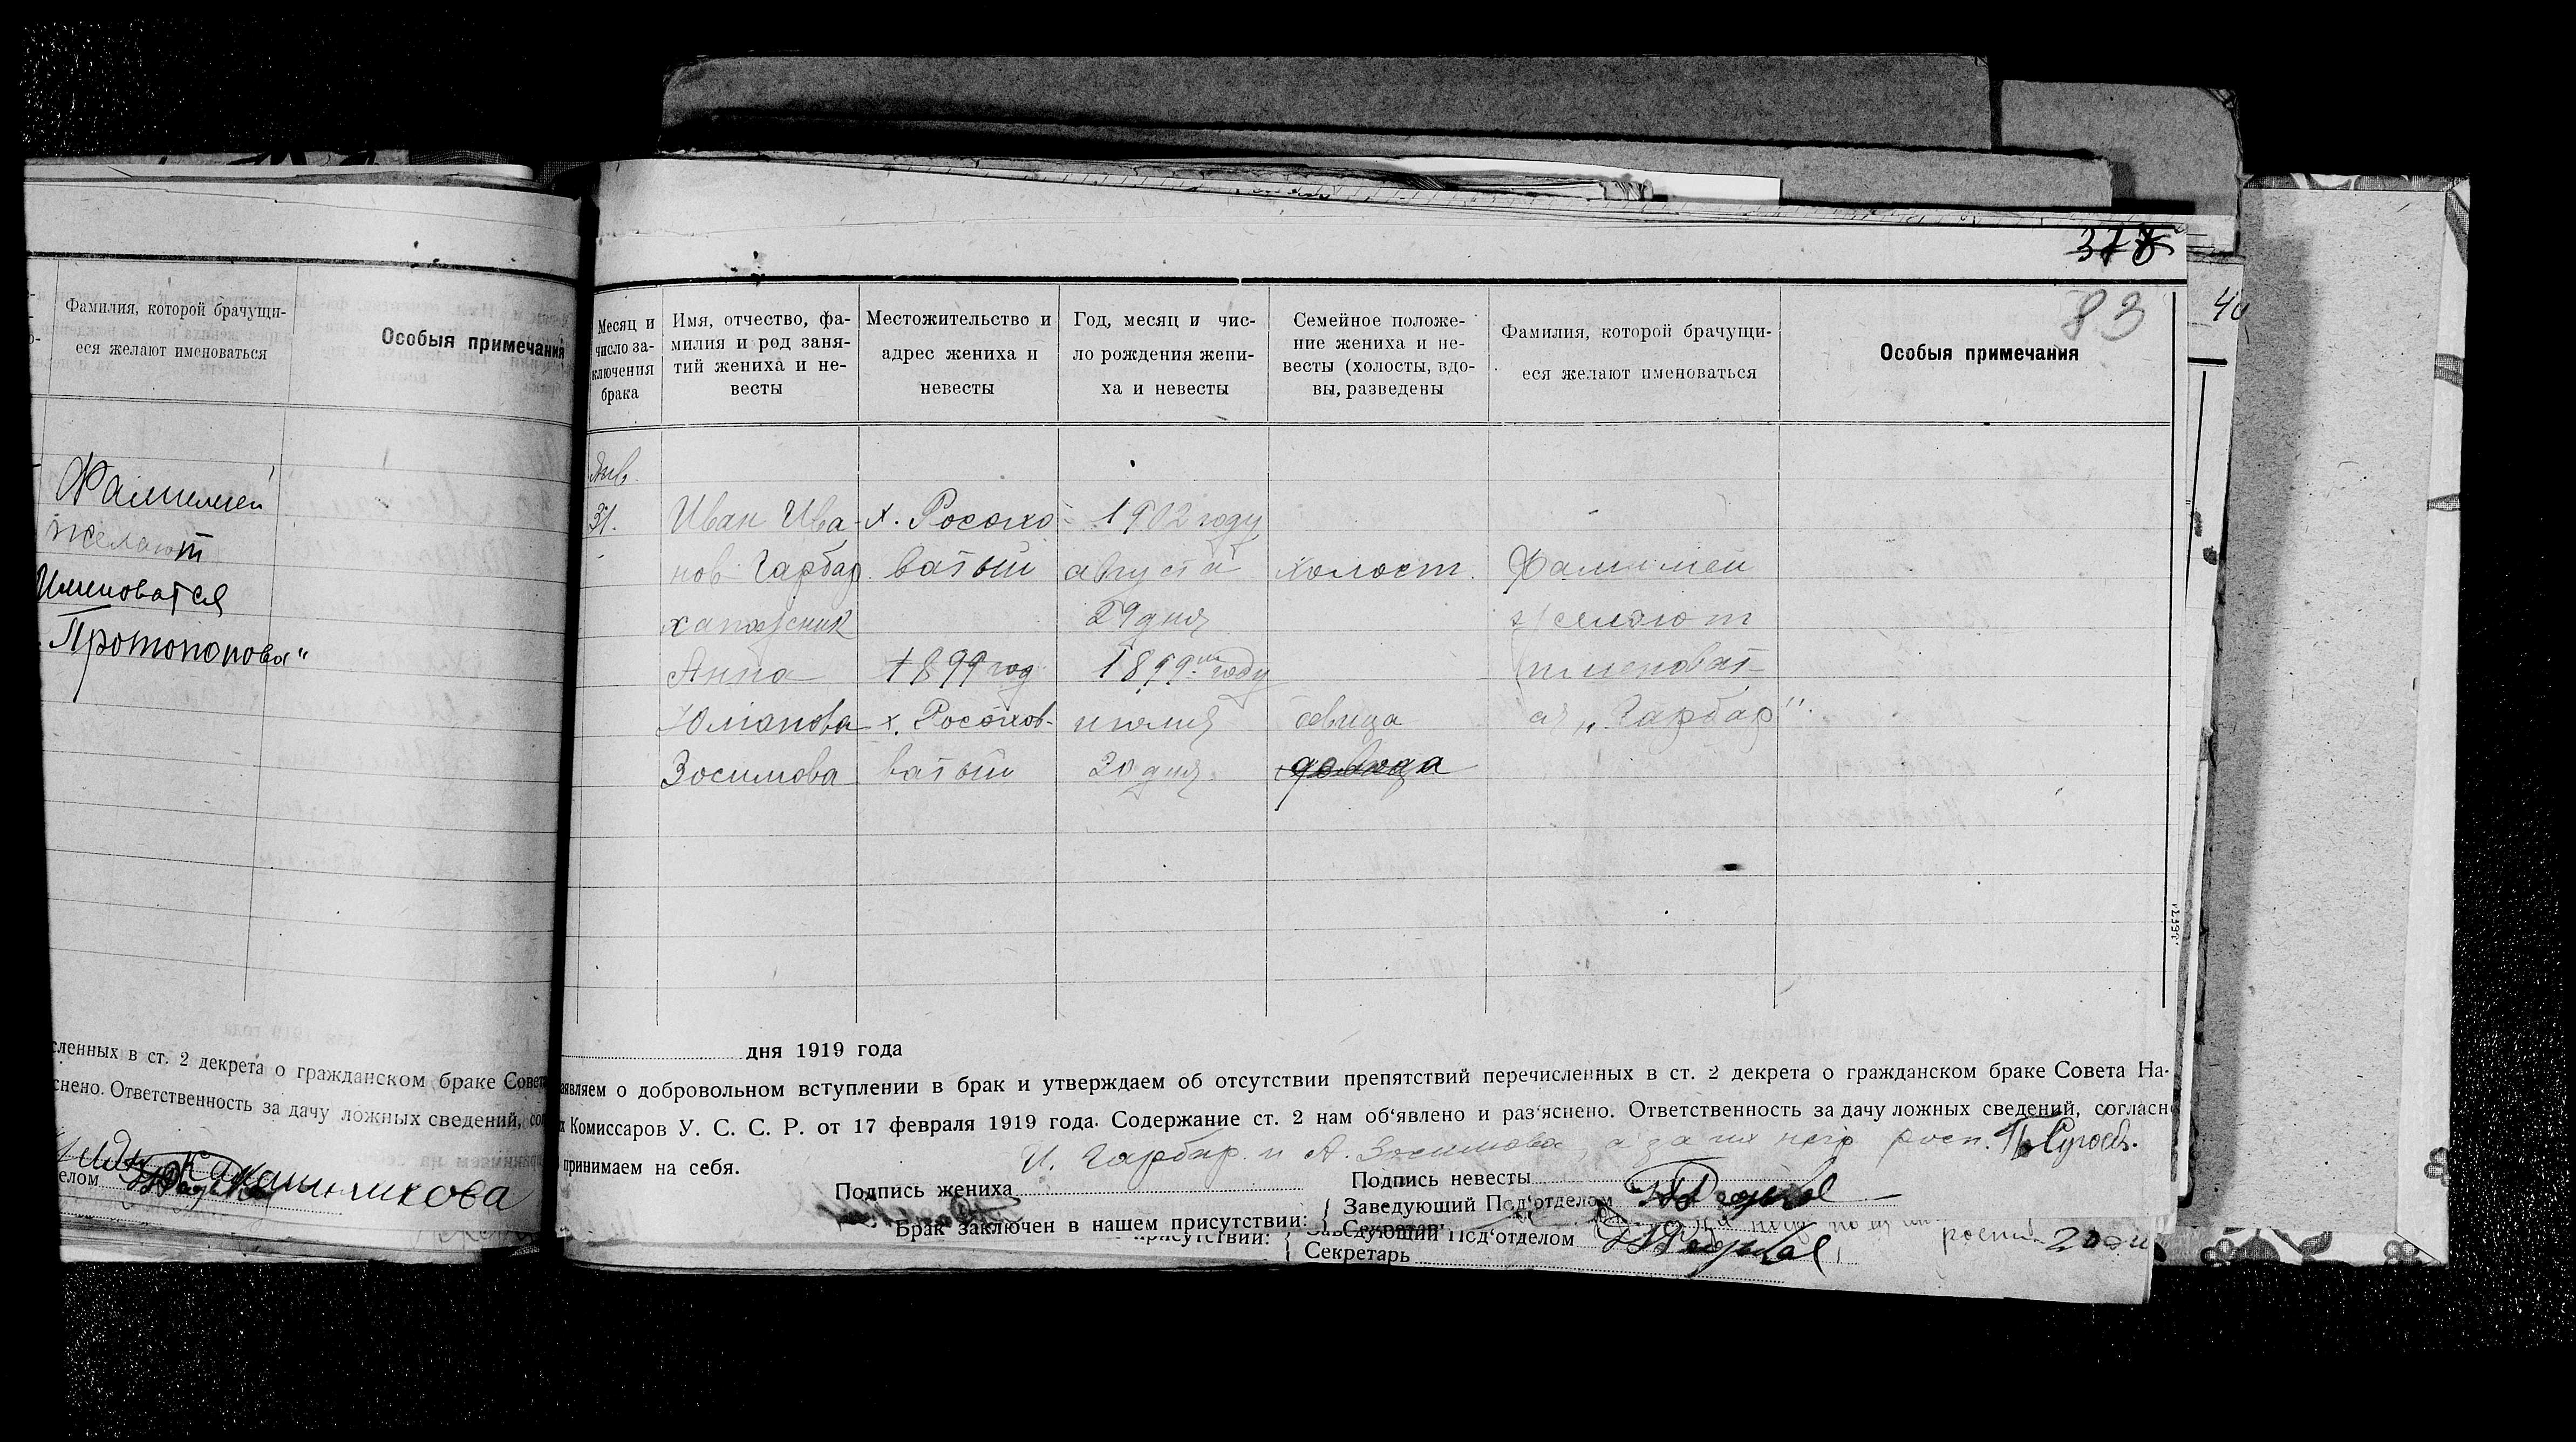 Фамилия, которой брачущи-
еся желают именоваться
Особыя примечания
Фамилией
желают
Именоватся
„Протопопова"
сленных в ст. 2 декрета о гражданском браке Совета
снено. Ответственность за дачу ложных сведений, со
елом
378
83
40
Месяц и
число за-
ключения
брака
Имя, отчество, фа-
милия и род заня-
тий жениха и не-
весты
Местожительство и
адрес жениха и
невесты
Год, месяц и чис-
ло рождения жени-
ха и невесты
Семейное положе-
ние жениха и не-
весты (холосты, вдо-
вы, разведены
Фамилия, которой брачущи-
еся желают именоваться
Особыя примечания
Янв.
31. Иван Ива- х. Росохо- 1902 году
нов Гарбар ватый августа холост. Фамилией
29 дня желают
Анна 1899 год 1899 году именоват-
х. Росохов- июля девица ся „Гарбар".
Зосимова ватый 20 дня
дня 1919 года
аявляем о добровольном вступлении в брак и утверждаем об отсутствии препятствий перечисленных в ст. 2 декрета о гражданском браке Совета На-
Комиссаров У. С. С. Р. от 17 февраля 1919 года. Содержание ст. 2 нам об'явлено и раз'яснено. Ответственность за дачу ложных сведений, согласн
принимаем на себя.
И. Гарбар и А. Зосимова, а за них росп.
Подпись жениха
Подпись невесты
Брак заключен в нашем присутствии:
Заведующий Под'отделом
Секретарь
присутствии:
Заведующий Под'отделом
Секретарь